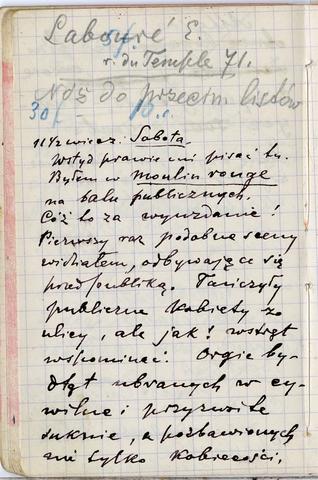 Labouré E.
r. du Temple 71.
Nóż do przecin. listów
30
11 1/2 wiecz. Sobota
Wstyd prawie mi pisać tu.
Byłem w moulin rouge
na balu publicznych.
Cóż to za wyuzdanie!
Pierwszy raz podobne sceny
widziałem, odbywające się
przed publiką. Tańczyły
publiczne kobiety z
ulicy, ale jak! wstręt
wspominać. Orgie by-
dląt ubranych w cy-
wilne i przyzwoite
suknie, a pozbawionych
nie tylko kobiecości,